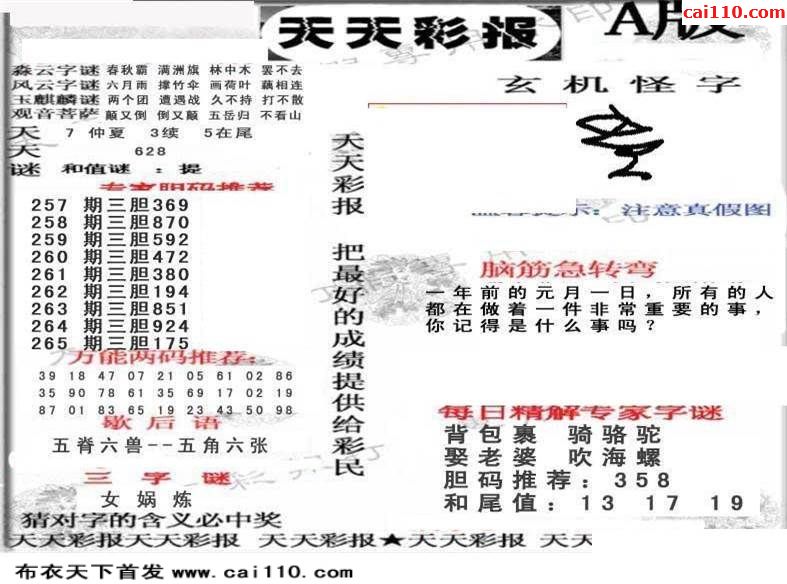 cai110.com
天天彩报
A版
淼云字谜 春秋霸 满洲旗 林中木 罢不去
风云字谜 六月雨 撑竹伞 画荷叶 藕相连
玉麒麟谜 两个团 遭遇战 久不持 打不散
观音菩萨 颠又倒 倒又颠 五岳归 不看山
天 7 仲夏 3续 5在尾
天 628
谜 和值谜 : 提
专家胆码推荐
257 期三胆369
258 期三胆870
259 期三胆592
260 期三胆472
261 期三胆380
262 期三胆194
263 期三胆851
264 期三胆924
265 期三胆175
万能两码推荐:
39 18 47 07 21 05 61 02 86
35 90 78 61 35 69 17 02 19
87 01 83 65 19 23 43 50 98
歇后语
五脊六兽--五角六张
三字谜
女娲炼
猜对字的含义必中奖
天天彩报 把最好的成绩提供给彩民
玄机怪字
温馨提示: 注意真假图
脑筋急转弯
一年前的元月一日，所有的人
都在做着一件非常重要的事，
你记得是什么事吗？
每日精解专家字谜
背包裹 骑骆驼
娶老婆 吹海螺
胆码推荐: 358
和尾值: 13 17 19
天天彩报天天彩报 天天彩报★天天彩报 天天
布衣天下首发 www.cai110.com